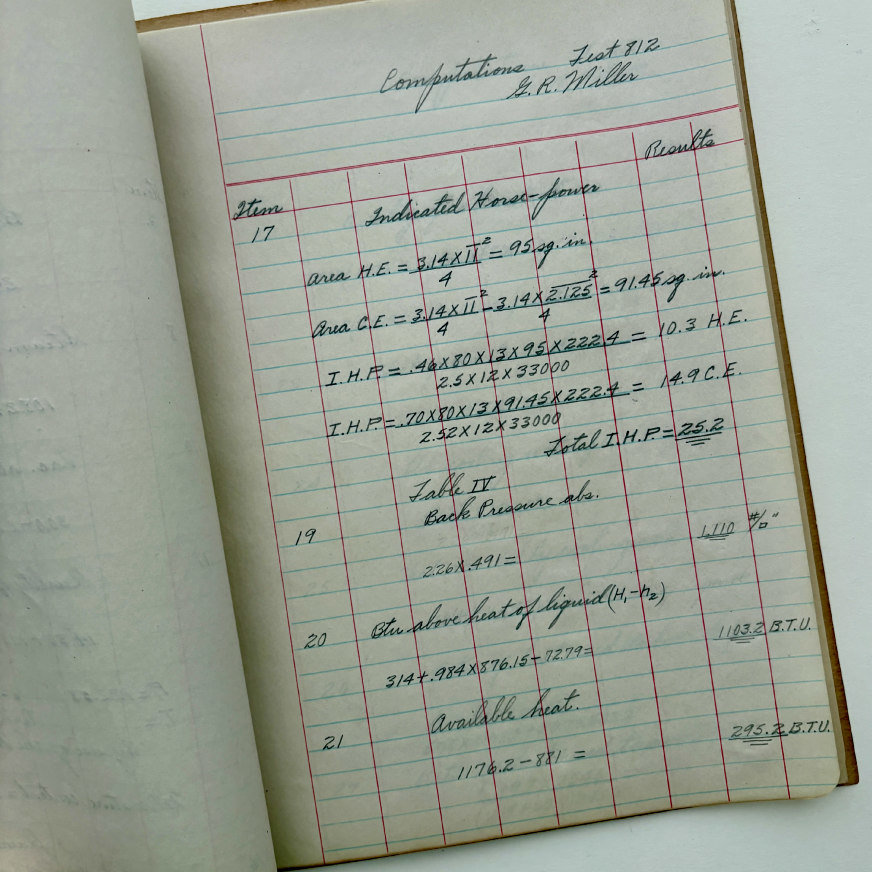 Computations Test 812
G. R. Miller
Results
Item
17 Indicated Horse-power
Area H.E. = 3.14 X 11² / 4 = 95 sq. in.
Area C.E. = 3.14 X 11² / 4 - 3.14 X 2.125² / 4 = 91.45 sq. in.
I.H.P. = .46 X 80 X 13 X 95 X 222.4 / 2.5 X 12 X 33000 = 10.3 H.E.
I.H.P. = .70 X 80 X 13 X 91.45 X 222.4 / 2.52 X 12 X 33000 = 14.9 C.E.
Total I.H.P. = 25.2
Table IV
19 Back Pressure abs.
2.26 X .491 = 1.110 #/□"
20 Btu above heat of liquid (H₁-h₂)
314 + .984 X 876.15 - 72.79 = 1103.2 B.T.U.
21 Available heat.
1176.2 - 881 = 295.2 B.T.U.